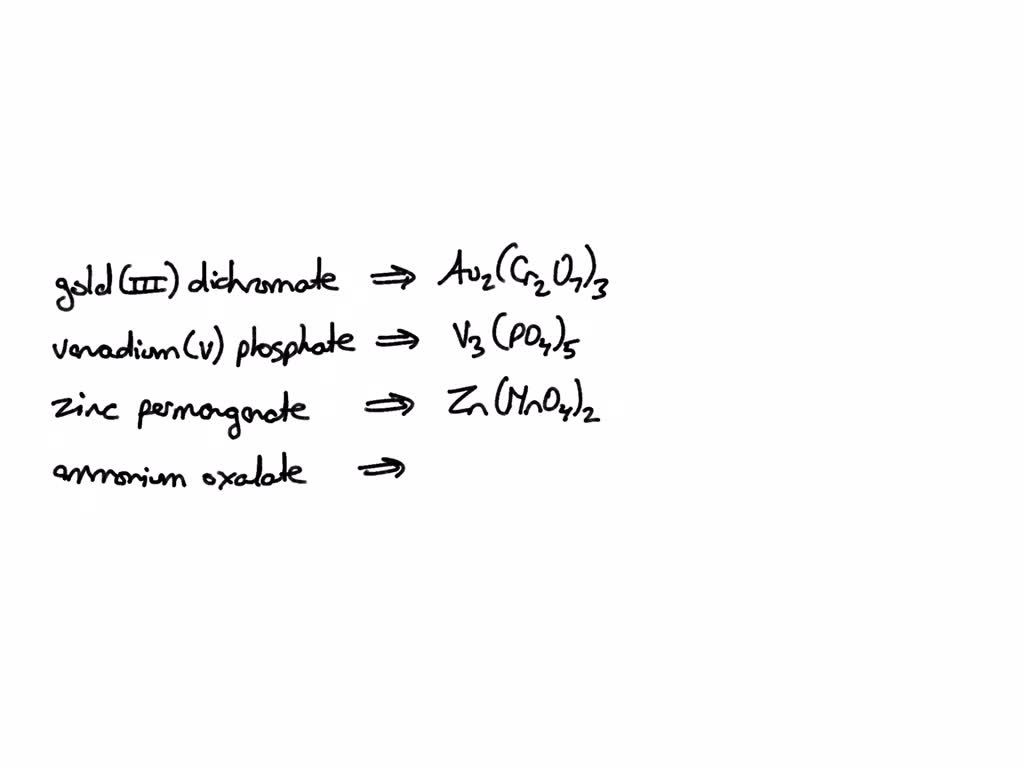 gold (III) dichromate ⇒ Au₂(Cr₂O₇)₃
vanadium (v) phosphate ⇒ V₃(PO₄)₅
zinc permanganate ⇒ Zn(MnO₄)₂
ammonium oxalate ⇒